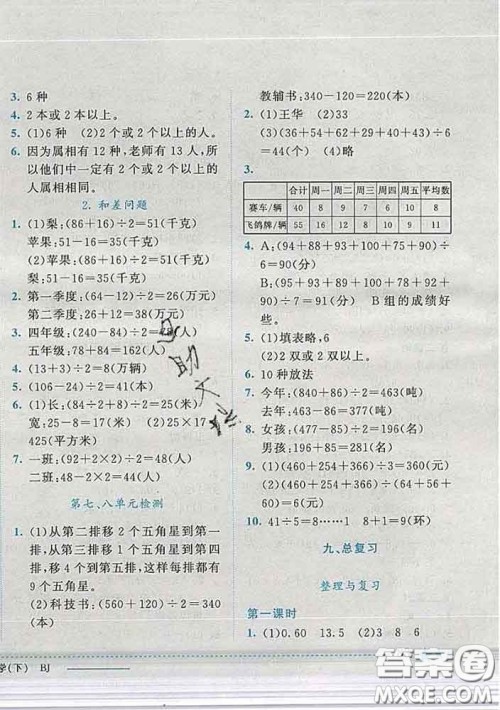 3. 6种
4. 2本或2本以上。
5. (1)6种 (2)2个或2个以上的人。
6. 因为属相有12种,老师有13人,所
以他们中一定有2个或2个以上的
人属相相同。
2. 和差问题
1. (1)梨:(86+16)÷2=51(千克)
苹果:51-16=35(千克)
(2)苹果:(86-16)÷2=35(千克)
梨:51-16=35(千克)
2. 第一季度:(64-12)÷2=26(万元)
第二季度:26+12=38(万元)
3. 四年级:(240-84)÷2=78(人)
五年级:78+84=162(人)
4. (13+3)÷2=8(万辆)
5. (106-24)÷2=41(本)
6. (1)长:(84÷2+8)÷2=25(米)
宽:25-8=17(米) (2)25×17=
425(平方米)
7. 一班:(92+2×2)÷2=48(人)
二班:(92-2×2)÷2=44(人)
第七、八单元检测
1. (1)从第二排移2个五角星到第一
排,或从第三排移4个五角星到第
四排,这样每排都有8个五角星。
(2)科技书:(560+120)÷2=340
(本)
教辅书:340-120=220(本)
2. (1)王华 (2)33
(3)(36+54+51+33+66)÷5=
48(个) (4)略
3.
合计 周一 周二 周三 周四 周五 平均数
赛车/辆 40 8 9 6 7 10 8
飞鸽牌/辆 55 16 12 10 8 9 11
4. A:(94+88+93+100+75+90)÷
6=90(分)
B:(92+95+94+90+89+98)÷
6=93(分) B组的成绩好
些。
5. (1)填表略,
(2)2双或2双以上。
6. 10种放法
7. 今年:(840+86)÷2=463(吨)
去年:463-86=377(吨)
8. 女孩:(487-65)÷2=211(件)
9. (1)(460+294+366+254+
366)÷5=348(元)
10. 41÷5=8……1 8+1=9(环)
九、总复习
整理与复习
第一课时
1. (1)0.60 13.5 (2)3 8 6
学(下) BJ
答案圈
MXQE.COM